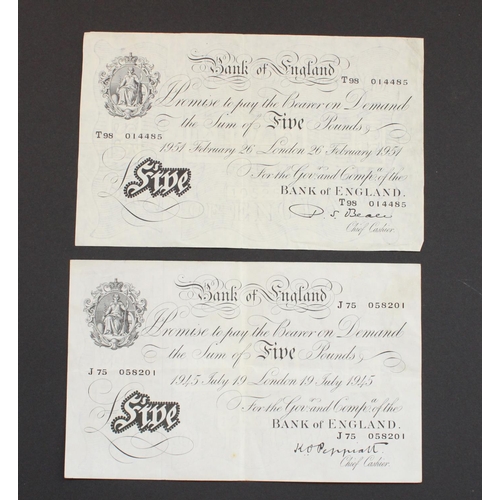 Bank of England
T98 014485
I Promise to pay the Bearer on Demand
the Sum of Five Pounds
T98 014485
1951 February 26 London 26 February 1951
For the Govr and Compa of the
Five
BANK OF ENGLAND.
T98 014485
P. S. Beale
Chief Cashier.
Bank of England
J75 058201
I Promise to pay the Bearer on Demand
the Sum of Five Pounds
J75 058201
1945 July 19 London 19 July 1945
For the Govr and Compa of the
Five
BANK OF ENGLAND.
J75 058201
K O Peppiatt
Chief Cashier.